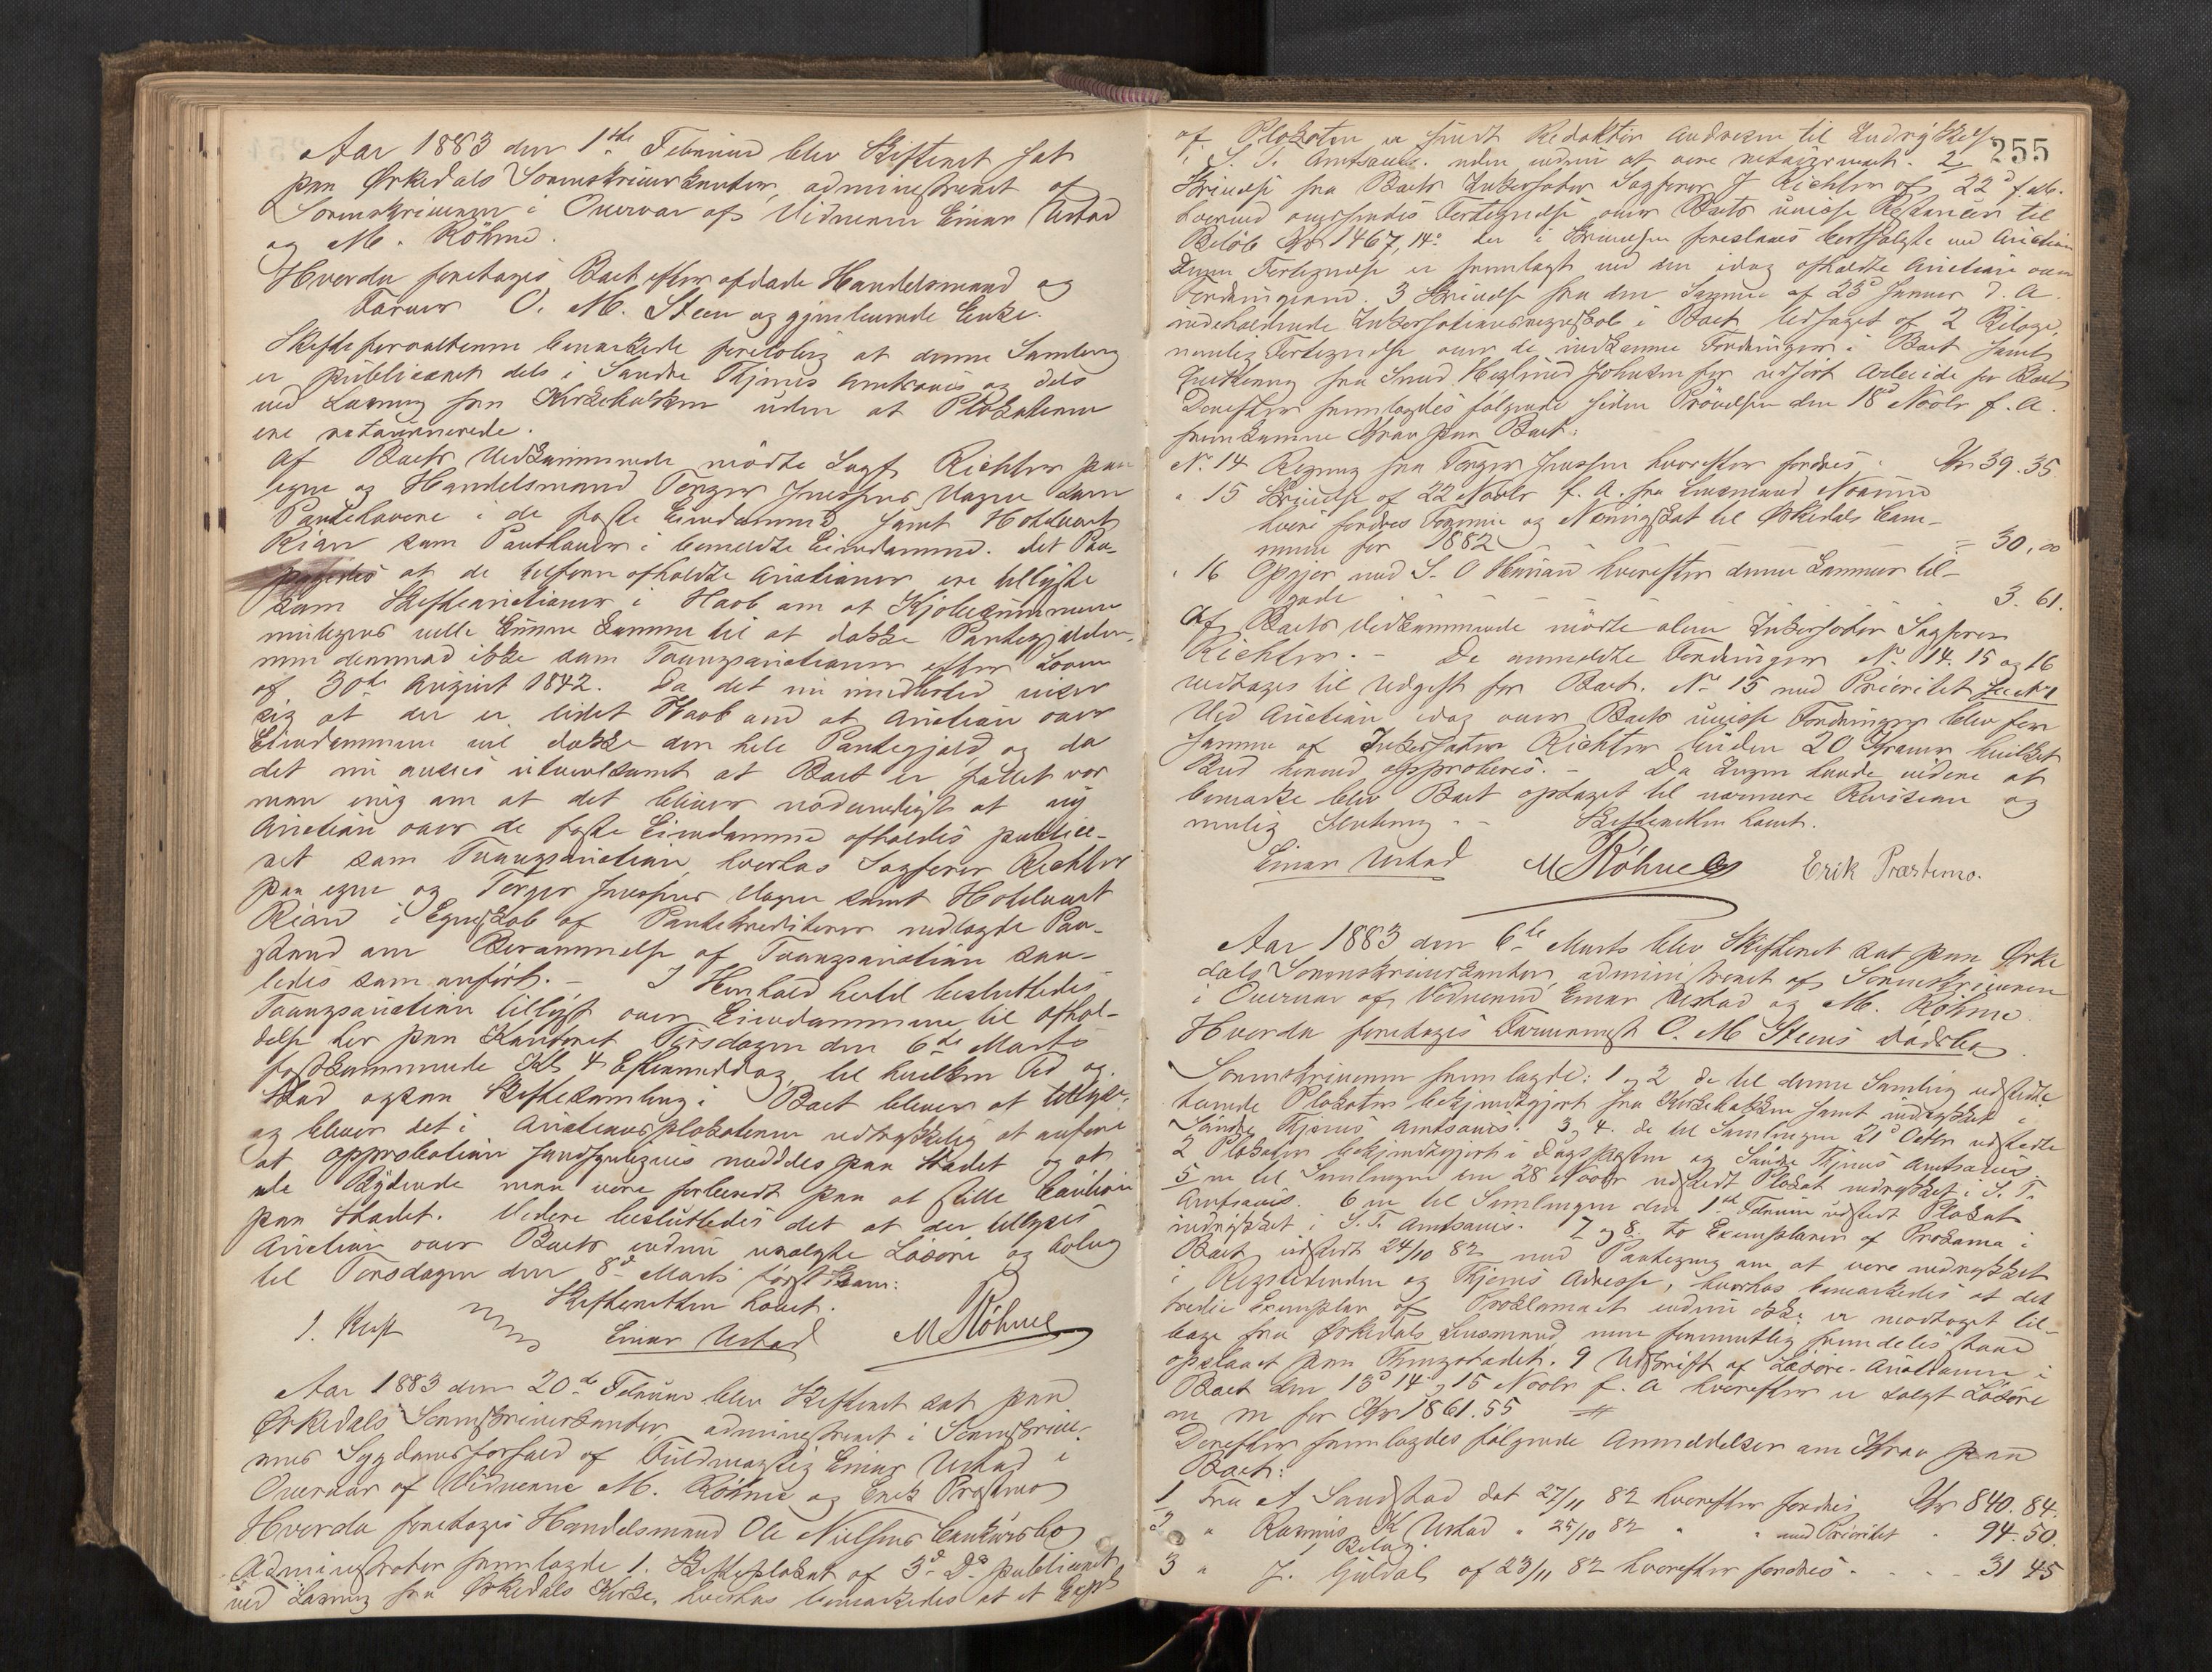 Aar 1883 den 1ste Februar blev Skifteret sat
paa Ørkedals Sorenskriverkontor, administreret af
Sorenskriveren i Overvær af Vidnerne Einar Ustad
og M. Röhme.
Hvorda foretages Boet efter afdøde Handelsmand og
Farver O. M. Steen og gjenlevende Enke.
Skifteforvalteren bemærkede foreløbig at denne Samling
er publiceret dels i Søndre Thjems Amtsavis og dels
ved Læsning fra Kirkebakken uden at Plakaterne
ere retournerede.
Af Boets Vedkommende mödte Sagf. Richter paa
egne og Handelsmand Torger Jnessens Vegne som
Panthavere i de faste Eiendomme samt Holdvart
Rian som Panthaver i bemeldte Eiendomme. Det Paa-
pegedes at de tilforn afholdte Auctioner ere tillyste
som Skifteauctioner i Haab om at Kjøbesummerne
muligens vilde kunne komme til at dække Pantegjælden,
men derimod ikke som Tvangsauctioner efter Loven
af 30te August 1842. Da det nu imidlertid viser
sig at der er lidet Haab om at Auction over
Eiendommene vil dække den hele Pantegjæld, og da
det nu ansees utvivlsomt at Boet er fallit var
man enig om at det bliver nödvendigt at ny
Auction over de faste Eiendomme afholdes publice-
ret som Tvangsauction, hvorhos Sagförer Richter
paa egne og Torger Jnessens Vegne samt Holdvart
Rian i Egenskab af Pantekreditorer nedlagde Paa-
stand om Berammelse af Tvangsauction saa-
ledes som anfört. – I Henhold hertil besluttedes
Tvangsauction tillyst over Eiendommene til Afhol-
delse her paa Kontoret Tirsdagen den 6te Marts
førstkommende Kl. 4 Eftermiddag, til hvilken Tid og
Sted ogsaa Skiftesamling i Boet bliver at tillyse.
og bliver det i Auctionsplakaterne udtrykkelig at anföre
at Approbation sandsynligvis meddeles paa Stedet og at
de Bydende maa være forberedt paa at stille Caution
paa Stedet. Videre besluttedes det at der tillyses
Auction over Boets endnu usolgte Lösöre og Avling
til Torsdagen den 8de Marts förstkom:
Skifteretten hævet.
Einar Ustad M Röhme
Aar 1883 den 20de Februar blev Skifteret sat paa
Ørkedals Sorenskriverkontor, administreret i Sorenskrive-
rens Sygdomsforfald af Fuldmægtig Einar Ustad i
Overvær af Vidnerne M. Röhme og Erik Præstmo
Hvorda foretages Handelsmand Ole Nielsens Concursbo
Administrator fremlagde 1. Skifteplakat af 3d. Ds publiceret
ved Læsning fra Ørkedals Kirke, hvorhos bemærkedes at et Expl
255
af Plakaten er sendt Redaktör Andresen til Indrykkelse
i S. T. Amtsavis. uden endnu at være retourneret. 2
Skrivelse fra Boets Inkassator Sagförer J Richter af 22d f. M.
hvorved oversendes Fortegnelse over Boets uvisse Restancer til
Belöb Kr 1467,14. der i Skrivelsen foreslaaes bortsolgte ved Auction
Denne Fortegnelse er fremlagt ved den idag afholdte Auction over
Fordringerne. 3 Skrivelse fra den Samme af 23d Januar d. A.
indeholdende Inkassationsregnskab i Boet ledsaget af 2 Bilage,
nemlig Fortegnelse over de indkomne Fordringer i Boet samt
Qvittering fra Smed Heglund Johnsen for udfört Arbeide for Boet
Derefter fremlagdes følgende siden Prövelsen den 18d Novbr f. A.
fremkomne Krav paa Boet:
No. 14 Regning fra Torger Jnessen hvorefter fordres Kr 39.35
" 15 Skrivelse af 22 Novbr f. A. fra Lensmand
hvori fordres og Næringsskat til Ørkedals Com-
mune for 1882 = 30,00
" 16 Opgjør med S. O hvorefter denne kommer til-
gode 3.61.
Af Boets Vedkommende mödte alene Inkassator Sagförer
Richter. – De anmeldte Fordringer No. 14. 15 og 16
vedtages til Udgift for Boet. No. 15 med Prioritet
Ved Auction idag over Boets uvisse Fordringer blev for
samme af Inkassator Richter buden 20 Kroner hvilket
Bud herved approberes. – Da Ingen havde videre at
bemærke blev Boet optaget til nærmere Revision og
mulig Slutning. – Skifteretten hævet.
Einar Ustad M Röhme Erik Præstmo.
Aar 1883 den 6te Marts blev Skifteret sat paa Ørke
dals Sorenskriverkontor, administreret af Sorenskriveren
i Overvær af Vidnerne Einar Ustad og M. Röhme
Hvorda foretages Farver O. M Steens Dödsbo
Sorenskriveren fremlagde: 1 og 2 de til denne Samling udstedte
Plakater bekjendtgjort fra Kirkebakken samt indrykket i
Søndre Thjems Amtsavis. 3 og 4. de til Samlingen 21d Octbr udstedte
2 Plakater bekjendtgjort i Dagsposten og Søndre Thjems Amtsavis
5 en til Samlingen den 28 Novbr udstedt Plakat indrykket i S. T.
Amtsavis. 6 en til Samlingen den 1ste Februar udstedt Plakat
indrykket i S. T. Amtsavis. 7 og 8 to Exemplarer af Proclama i
Boet, udstedt 24/10 82 med Paategning om at være indrykket
i Rigstidenden og Thjems Adresse, hvorhos bemærkedes at det
tredie Exemplar af Proclamaet endnu ikke er modtaget til-
bage fra Ørkedals Lensmand men formentlig fremdeles staar
opslaaet paa Thingstedet. 9 Udskrift af Løsøre-Auctionen i
Boet den 13d 14 og 15 Novbr f. A hvorefter er solgt Lösöre
m m for Kr 1861.55
Derefter fremlagdes følgende Anmeldelser om Krav paa
Boet:
1 Fra A Sandstad dat 27/11 82 hvorefter fordres Kr 840.84.
2 " Rasmus K Ustad " 25/10 82 " " med Prioritet " 94.50.
1 Bilag.
3 " J. Guldal af 23/11 82 hvorefter fordres. - - - 31 45